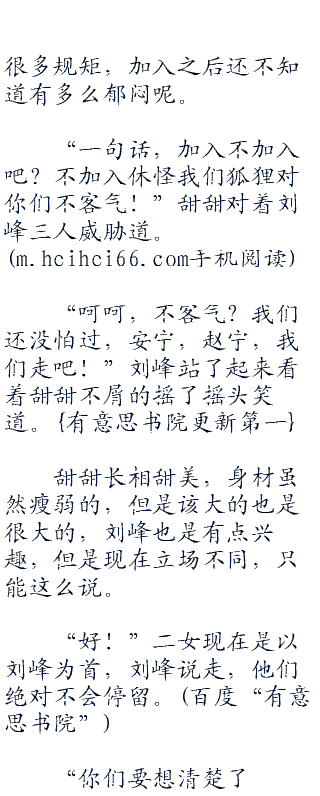 很多规矩，加入之后还不知
道有多么郁闷呢。
“一句话，加入不加入
吧？不加入休怪我们狐狸对
你们不客气！”甜甜对着刘
峰三人威胁道。
(m.hcihci66.com手机阅读)
“呵呵，不客气？我们
还没怕过，安宁，赵宁，我
们走吧！”刘峰站了起来看
着甜甜不屑的摇了摇头笑
道。{有意思书院更新第一}
甜甜长相甜美，身材虽
然瘦弱的，但是该大的也是
很大的，刘峰也是有点兴
趣，但是现在立场不同，只
能这么说。
“好！”二女现在是以
刘峰为首，刘峰说走，他们
绝对不会停留。(百度“有意
思书院”)
“你们要想清楚了